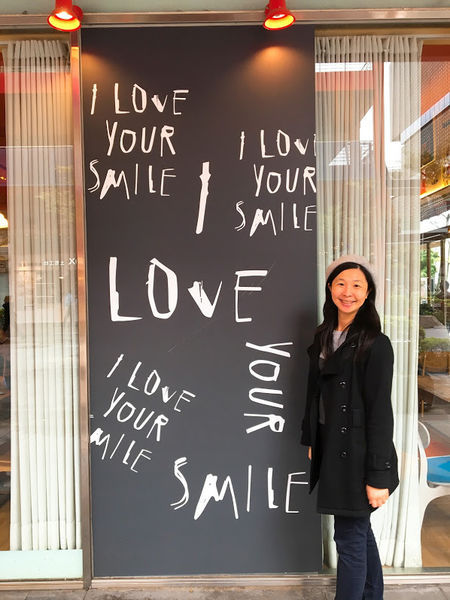 I LOVE
YOUR
SMILE
I LOVE
YOUR
SMILE
I
LOVE
YOUR
SMILE
I LOVE
YOUR
SMILE